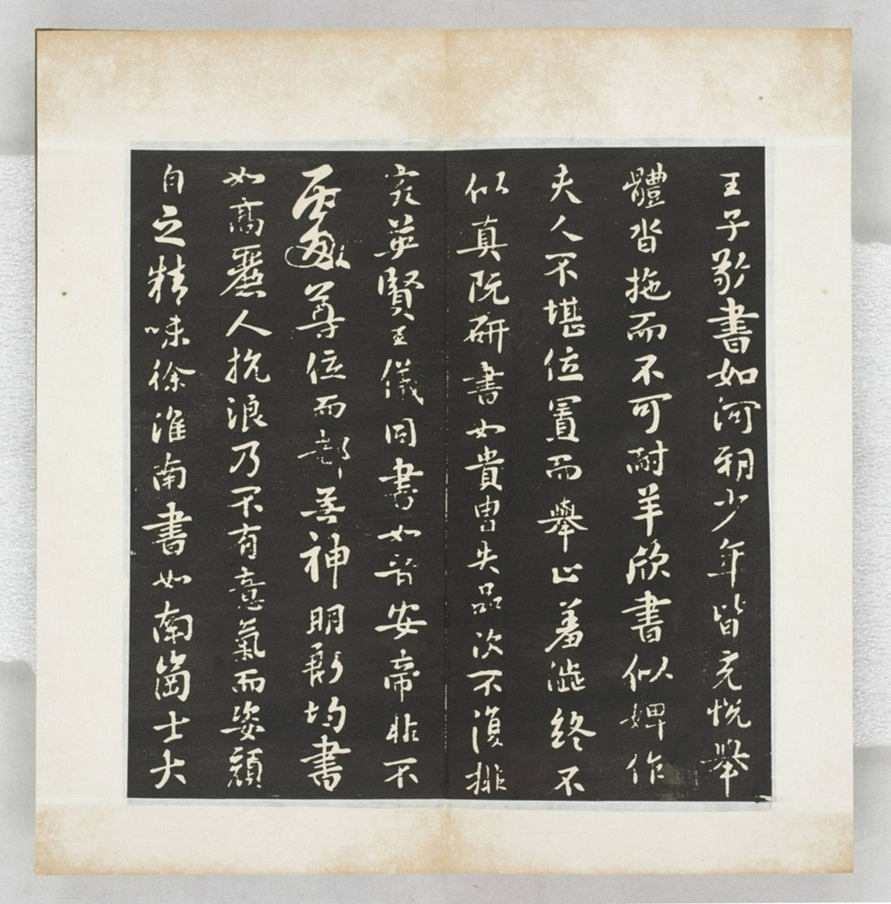 王子敬書如河朔少年皆充悅舉
體沓拖而不可耐羊欣書似婢作
夫人不堪位置而舉止羞澁終不
似真阮研書如貴胄失品次不復排
突英賢王儀同書如晉安帝非不
處尊位而都無神明殷均書
如高麗人抗浪乃不有意氣而姿顏
自乏精味徐淮南書如南崗士大